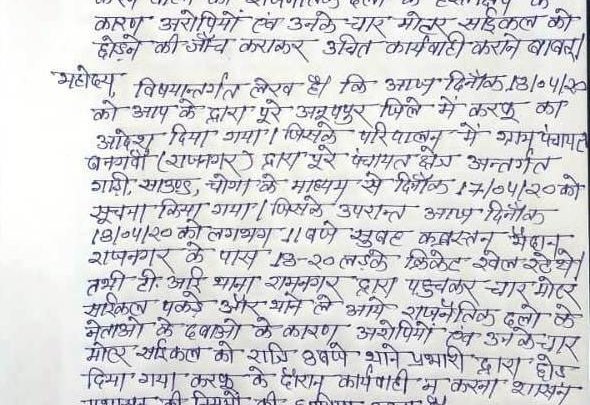 कारण अरोपियों एवं उनके चार मोटर साईकल को
छोड़ने की जाँच कराकर उचित कार्यवाही कराने बाबत।
महोदय, विषयान्तर्गत लेख है। कि आज दिनाँक 18/04/20
को आप के द्वारा पूरे अनूपपुर जिले में करफू का
आदेश दिया गया। जिसके परिपालन में ग्राम पंचायत
बनगवाँ (राजनगर) द्वारा पूरे पंचायत क्षेत्र अन्तर्गत
गाड़ी, साउण्ड, चोगा के माध्यम से दिनाँक 17/04/20 को
सूचना किया गया। जिसके उपरान्त आज दिनाँक
18/04/20 को लगभग 11 बजे सुबह कब्रस्तन मैदान
राजनगर के पास 18-20 लड़के क्रिकेट खेल रहे थे।
तभी टी. आई थाना रामनगर द्वारा पहुचकर चार मोटर
सईकल पकड़े और थाने ले आये राजनैतिक दलो के
नेताओ के दवाओ के कारण अरोपियो एवं उनके चार
मोटर सईकल को रात्रि 8 बजे थाने प्रभारी द्वारा छोड़
दिया गया करफू के दौरान कार्यवाही न करना शासन